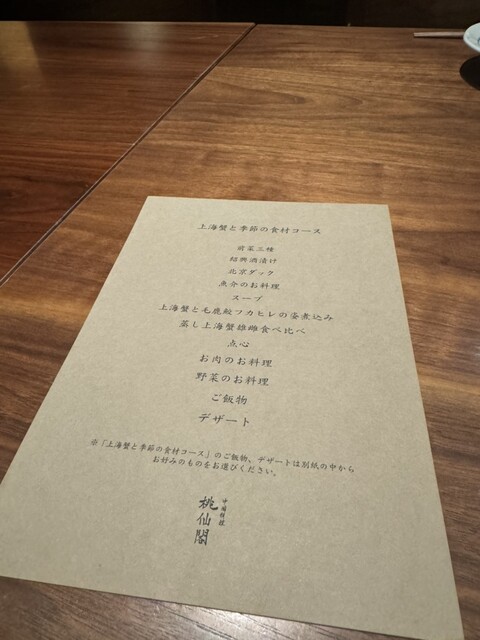 上海蟹と季節の食材コース
前菜三種
紹興酒漬け
北京ダック
魚介のお料理
スープ
上海蟹と毛鹿鮫フカヒレの姿煮込み
蒸し上海蟹雄雌食べ比べ
点心
お肉のお料理
野菜のお料理
ご飯物
デザート
※「上海蟹と季節の食材コース」のご飯物、デザートは別紙の中から
お好みのものをお選びください。
中国料理
桃仙閣